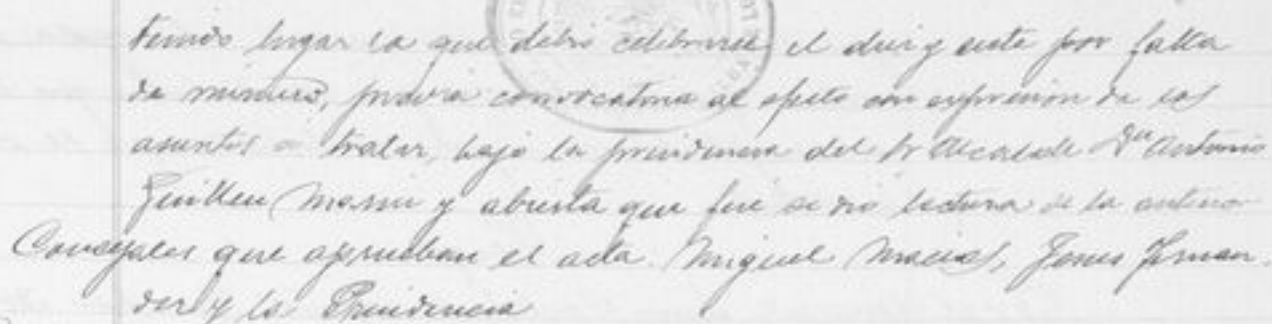 tenido lugar la que debio celebrarse el diez y siete por falta
de número, previa convocatoria al efecto con expresion de los
asuntos a tratar, bajo la presidencia del Sr Alcalde Dn Antonio
Guillen y abierta que fué se dio lectura de la anterior
Concejales que aprueban el acta. Miguel Macias, Jesus Fernan-
dez y la Presidencia